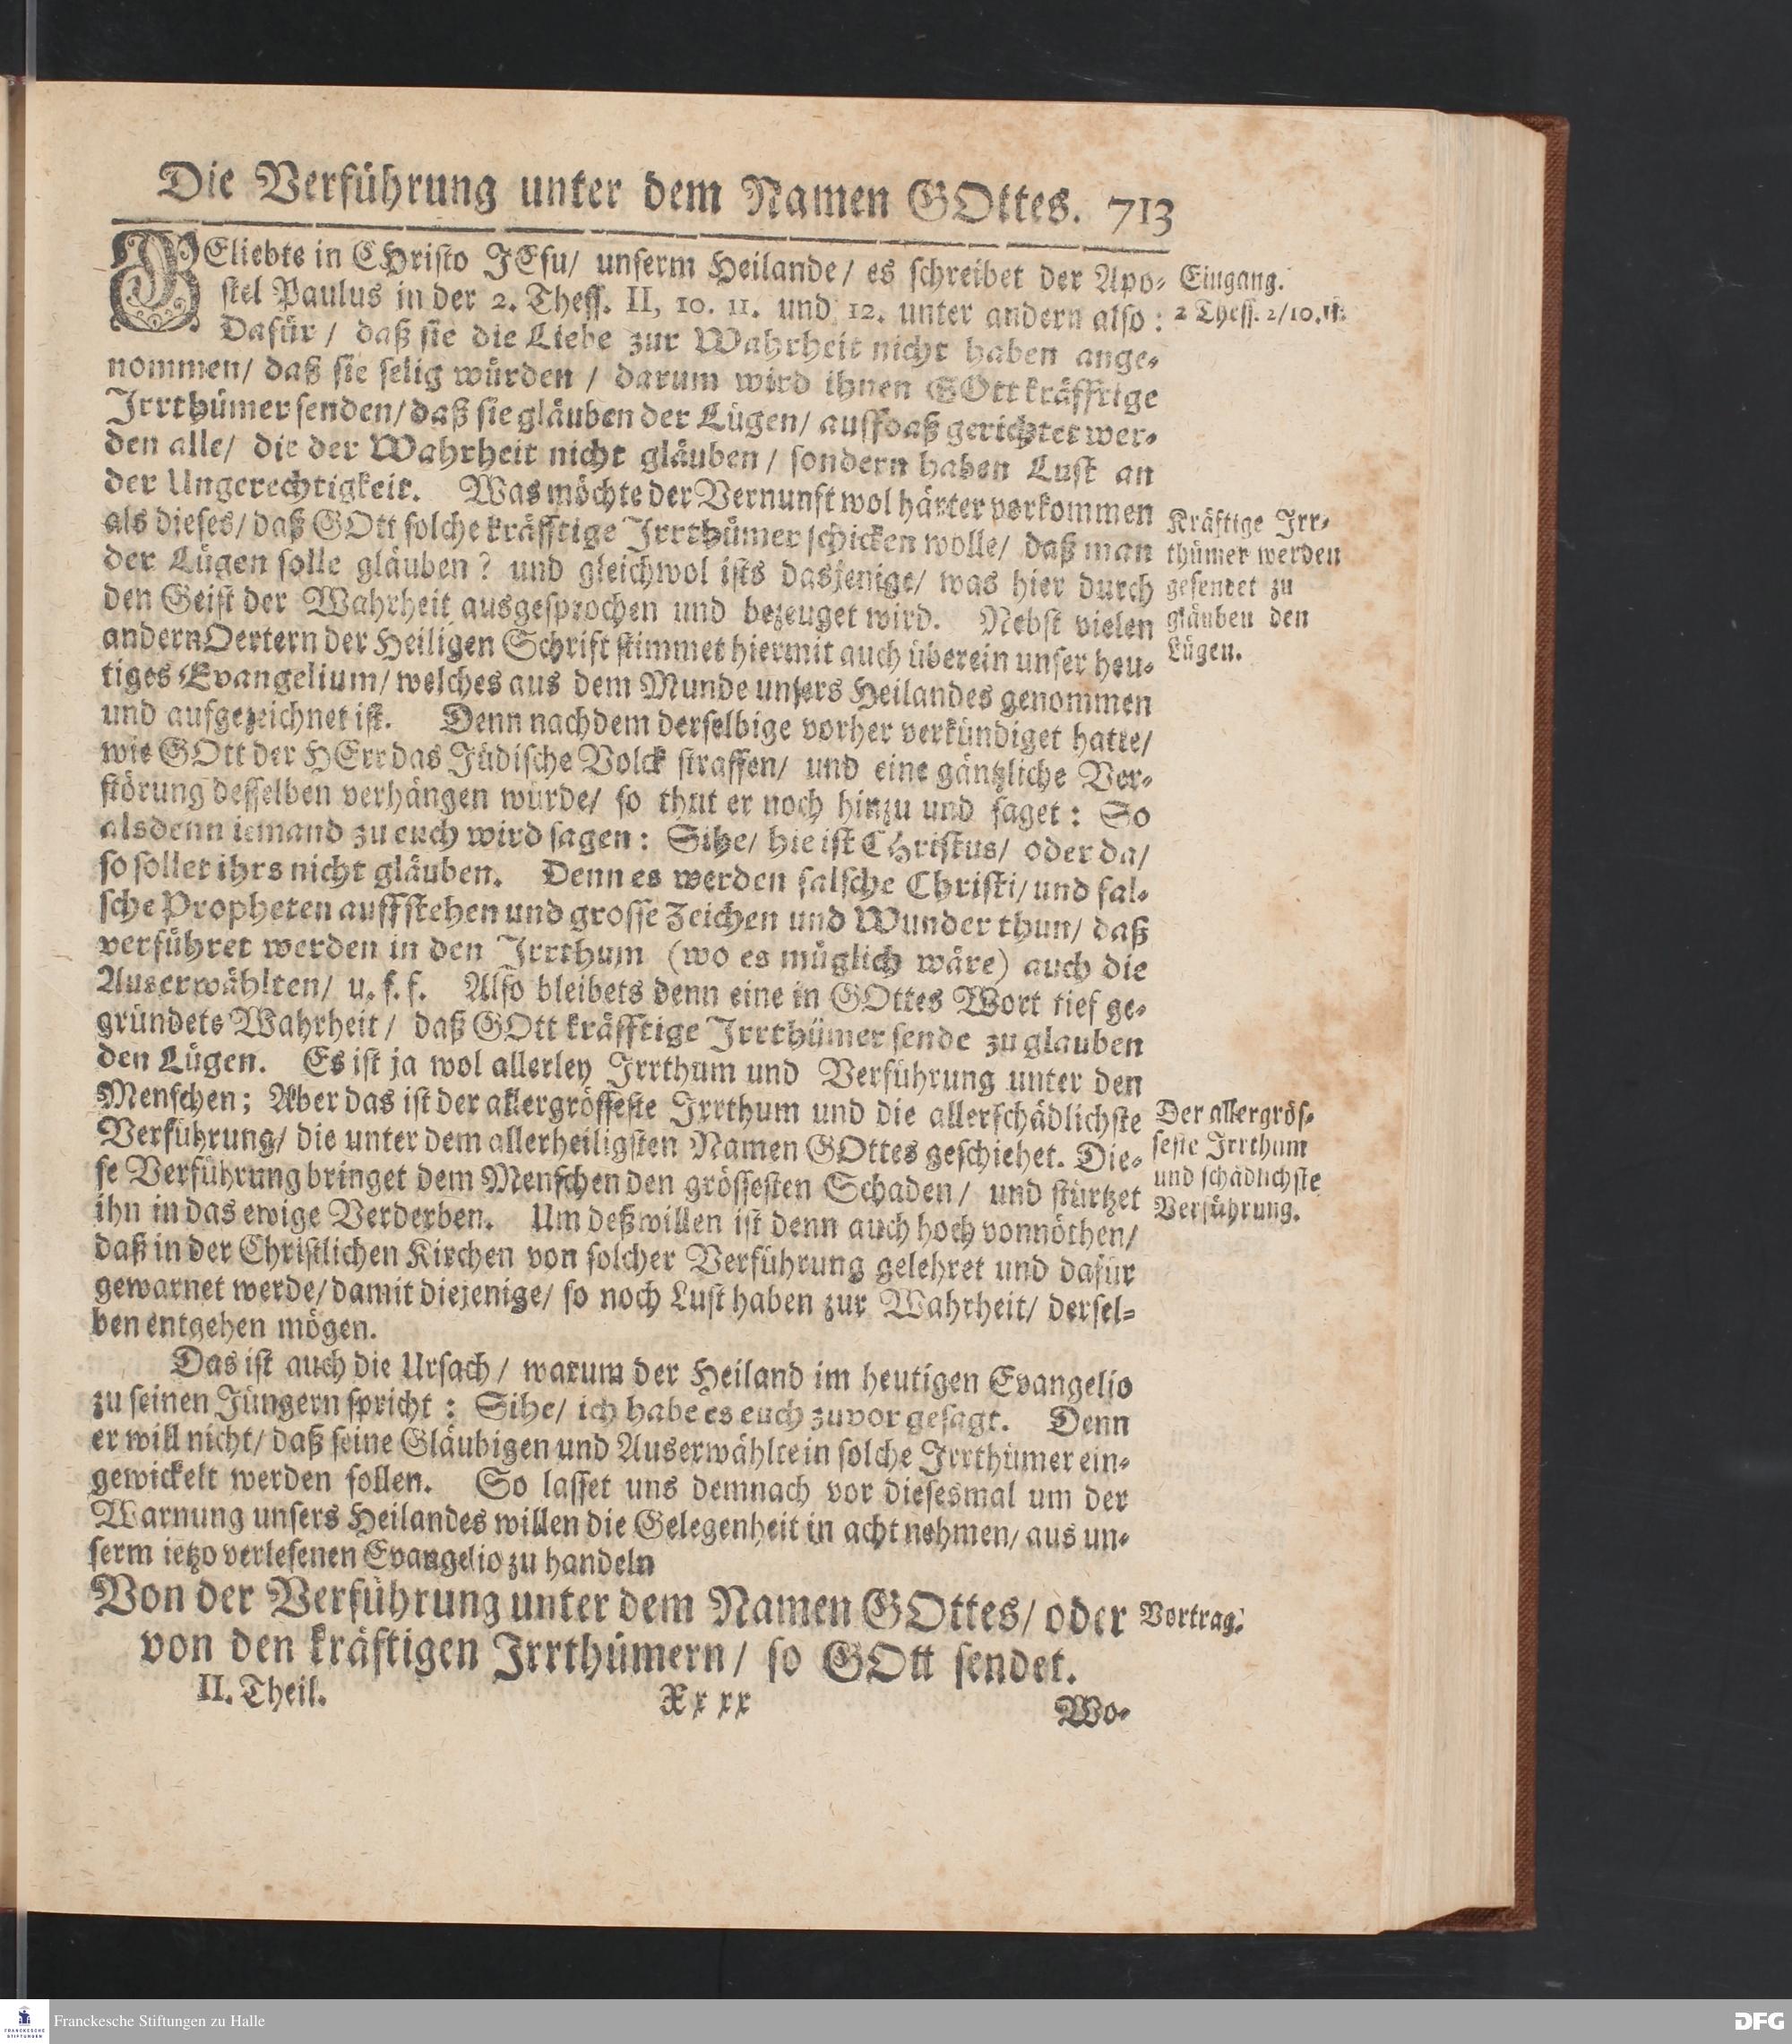 Die Verführung unter dem Namen GOttes. 713
GEliebte in CHristo JEsu/ unserm Heilande/ es schreibet der Apo-
stel Paulus in der 2. Thess. II, 10. 11. und 12. unter andern also:
Dafür/ daß sie die Liebe zur Wahrheit nicht haben ange-
nommen/ daß sie selig würden/ darum wird ihnen GOtt kräfftige
Irrthümer senden/ daß sie gläuben der Lügen/ auffdaß gerichtet wer-
den alle/ die der Wahrheit nicht gläuben/ sondern haben Lust an
der Ungerechtigkeit. Was möchte der Vernunft wol härter vorkommen
als dieses/ daß GOtt solche kräfftige Irrthümer schicken wolle/ daß man
der Lügen solle gläuben? und gleichwol ists dasjenige/ was hier durch
den Geist der Wahrheit ausgesprochen und bezeuget wird. Nebst vielen
andern Oertern der Heiligen Schrift stimmet hiermit auch überein unser heu-
tiges Evangelium/ welches aus dem Munde unsers Heilandes genommen
und aufgezeichnet ist. Denn nachdem derselbige vorher verkündiget hatte/
wie GOtt der HErr das Jüdische Volck straffen/ und eine gäntzliche Ver-
störung desselben verhängen würde/ so thut er noch hinzu und saget: So
alsdenn iemand zu euch wird sagen: Sihe/ hie ist CHristus/ oder da/
so sollet ihrs nicht gläuben. Denn es werden falsche Christi/ und fal-
sche Propheten auffstehen und grosse Zeichen und Wunder thun/ daß
verführet werden in den Irrthum (wo es müglich wäre) auch die
Auserwählten/ u. s. f. Also bleibets denn eine in GOttes Wort tief ge-
gründete Wahrheit/ daß GOtt kräfftige Irrthümer sende zu glauben
den Lügen. Es ist ja wol allerley Irrthum und Verführung unter den
Menschen; Aber das ist der allergrösseste Irrthum und die allerschädlichste
Verführung/ die unter dem allerheiligsten Namen GOttes geschiehet. Die-
se Verführung bringet dem Menschen den grössesten Schaden/ und stürtzet
ihn in das ewige Verderben. Um deßwillen ist denn auch hoch vonnöthen/
daß in der Christlichen Kirchen von solcher Verführung gelehret und dafür
gewarnet werde/ damit diejenige/ so noch Lust haben zur Wahrheit/ dersel-
ben entgehen mögen.
Das ist auch die Ursach/ warum der Heiland im heutigen Evangelio
zu seinen Jüngern spricht: Sihe/ ich habe es euch zuvor gesagt. Denn
er will nicht/ daß seine Gläubigen und Auserwählte in solche Irrthümer ein-
gewickelt werden sollen. So lasset uns demnach vor diesesmal um der
Warnung unsers Heilandes willen die Gelegenheit in acht nehmen/ aus un-
serm ietzo verlesenen Evangelio zu handeln
Von der Verführung unter dem Namen GOttes/ oder
von den kräftigen Irrthümern/ so GOtt sendet.
II. Theil.
Xx xx
Wo-
Eingang.
2 Thess. 2/10.11.
Kräftige Irr-
thümer werden
gesendet zu
gläuben den
Lügen.
Der allergrös-
seste Irrthum
und schädlichste
Verführung.
Vortrag.
Franckesche Stiftungen zu Halle
FRANCKESCHE
STIFTUNGEN
DFG